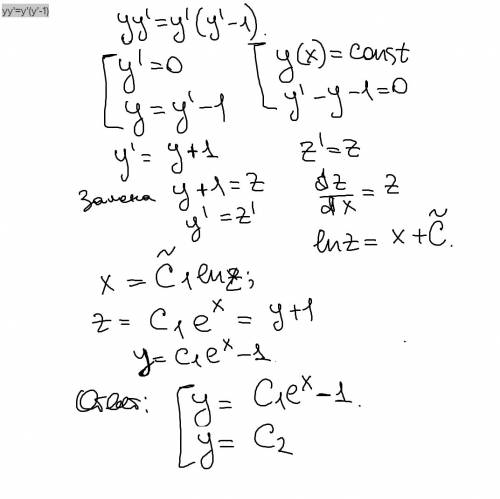 yy'=y'(y'-1)
yy'=y'(y'-1).
[ y'=0 [ y(x)=const
y=y'-1 y'-y-1=0
y'=y+1 z'=z
Замена y+1=z dz/dx=z
y'=z' lnz=x+C̃.
x=C̃₁lnz;
z=C₁eˣ=y+1
y=C₁eˣ-1.
Ответ: [ y=C₁eˣ-1.
y=C₂